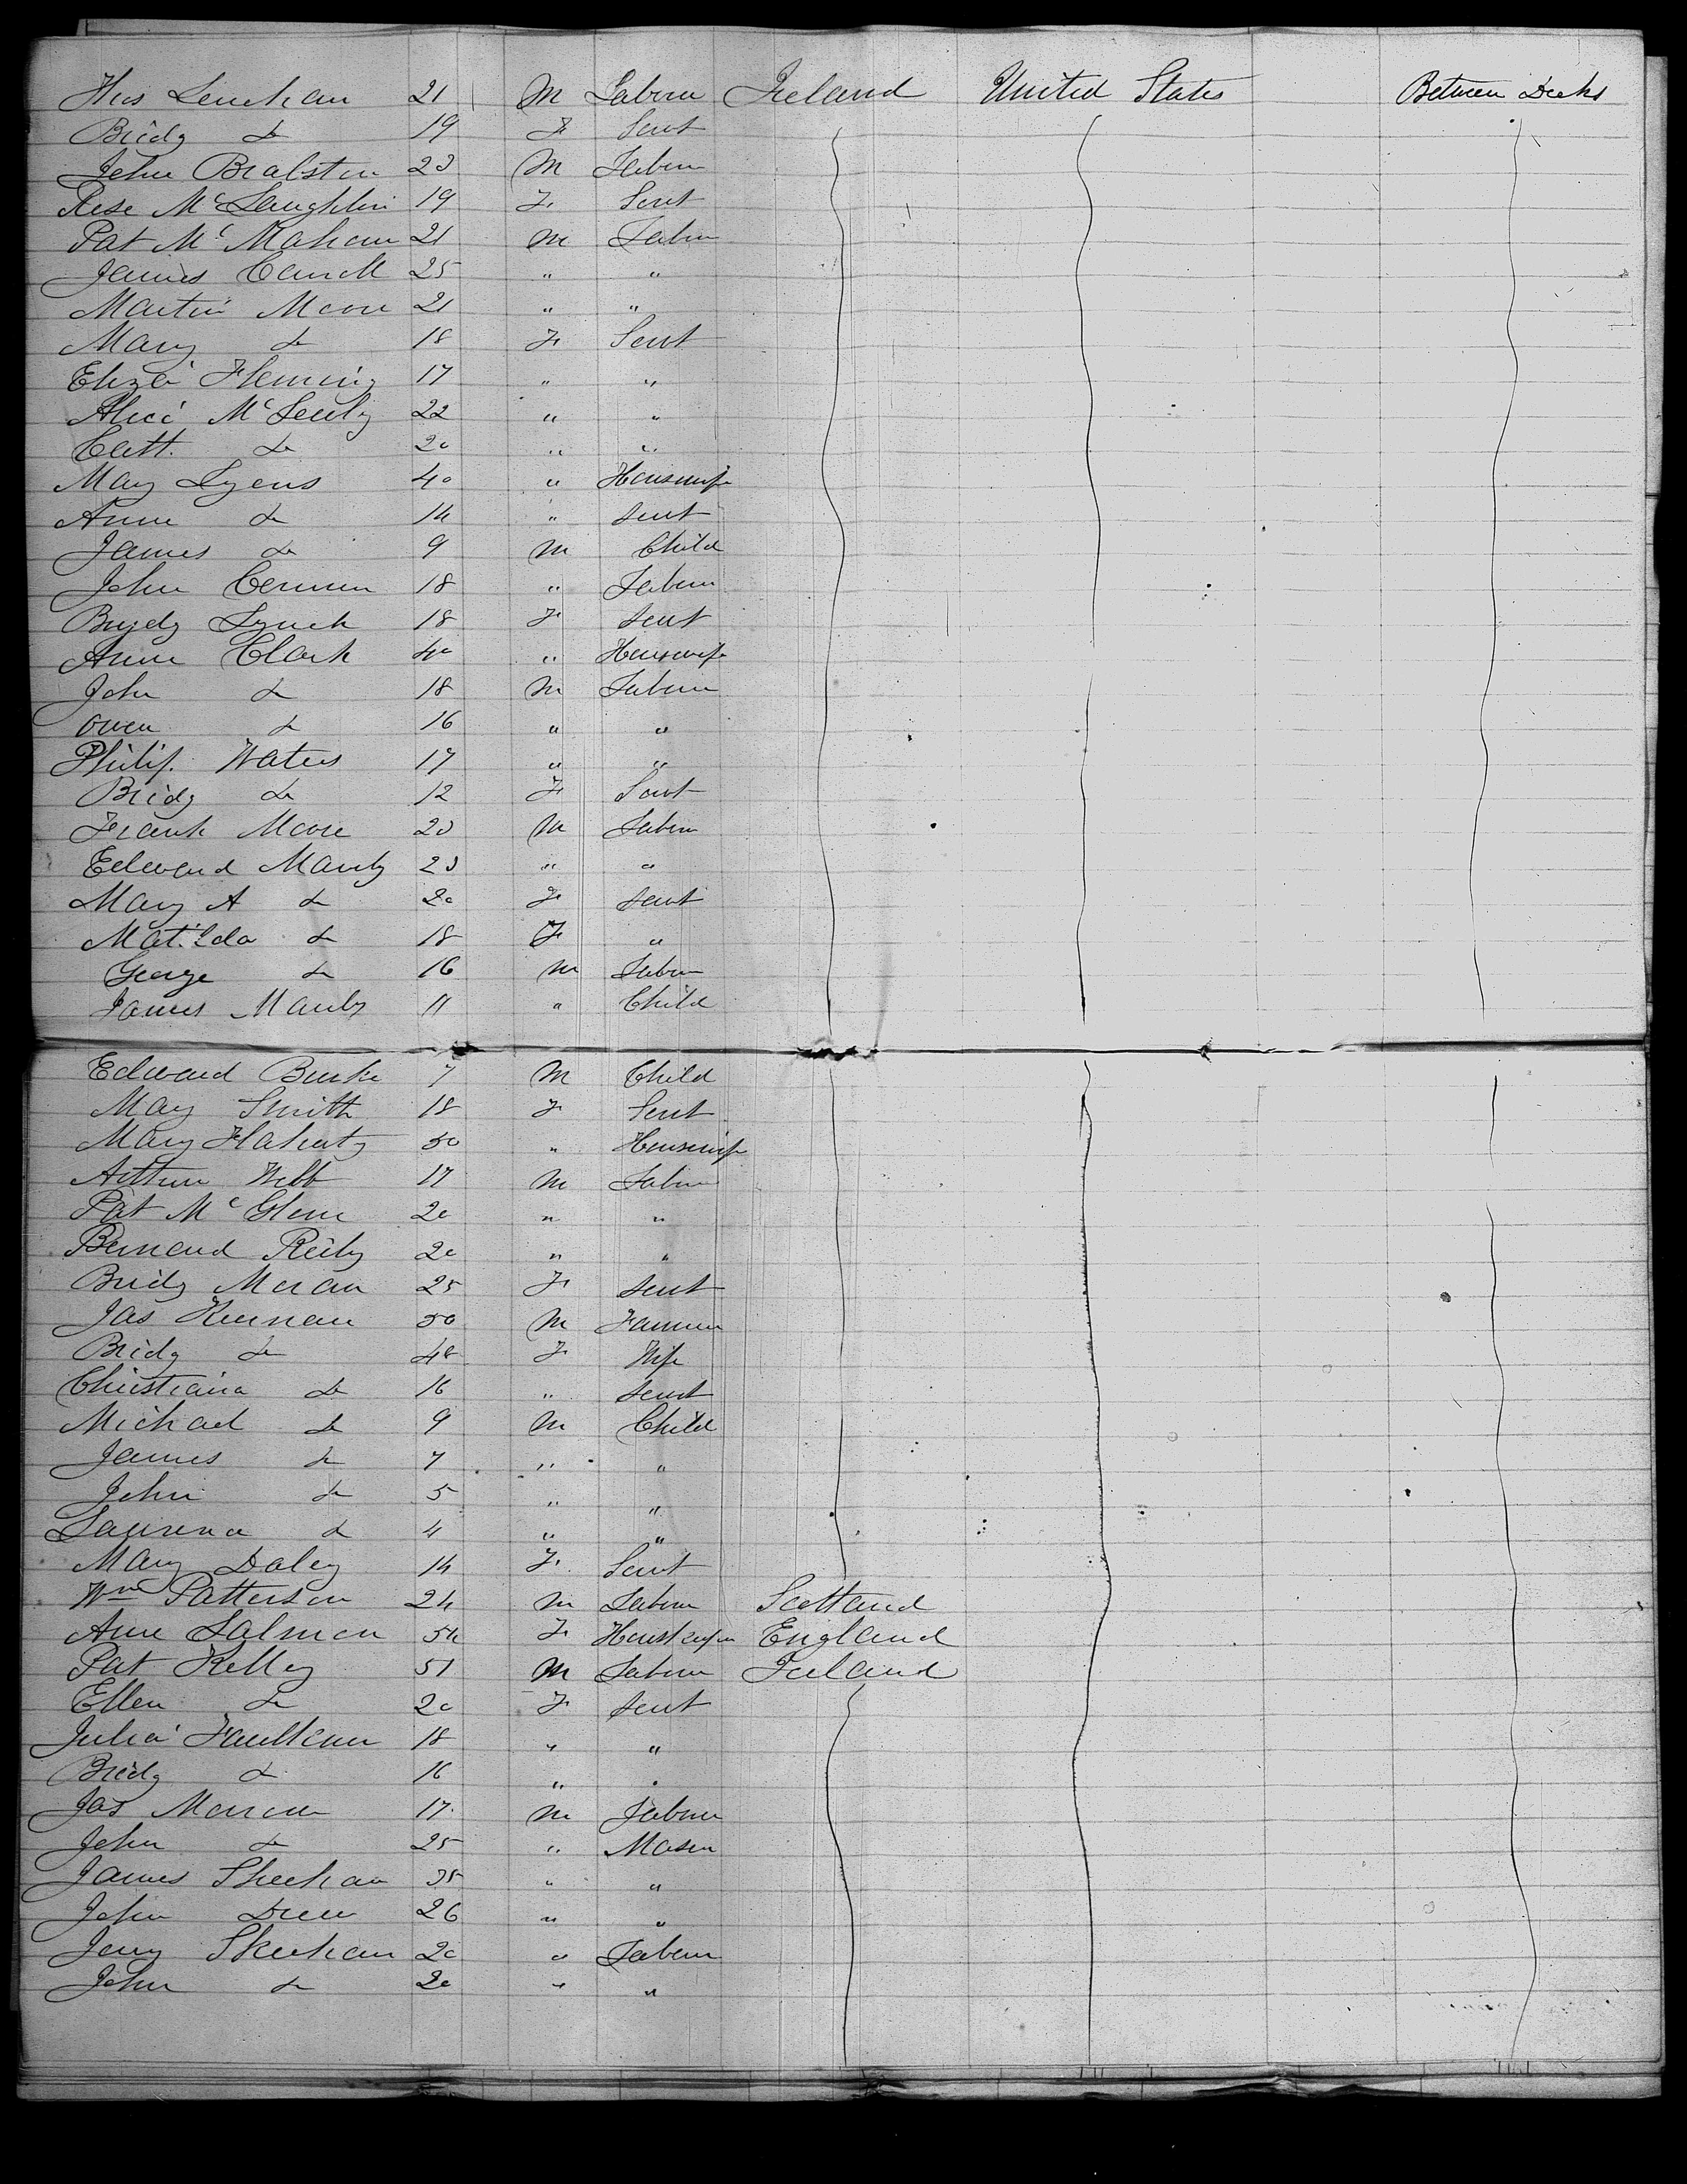 Thos Lenehan 21 M Labour Ireland United States Between Decks
Bridg do 19 F Servt
John Bralston 23 M Labour
Rose McLaughlin 19 F Servt
Pat McMahon 21 M Labour
James Carroll 25 " "
Martin Moore 21 " "
Mary do 18 F Servt
Eliza Fleming 17 " "
Alice 22 " "
Cath. do 20 " "
Mary Lyons 40 " Housewife
Anne do 14 " Servt
James do 9 M Child
John 18 " Labour
Bridg Lynch 18 F Servt
Anne Clark 40 " Housewife
John do 18 M Labour
Owen do 16 " "
Philip Waters 17 " "
Bridg do 12 F Servt
Frank Moore 23 M Labour
Edward Manly 23 " "
Mary A do 20 F Servt
Matilda do 18 F "
George do 16 M Labour
James Manly 11 " Child
Edward Burke 7 M Child
Mary Smith 18 F Servt
Mary Flaherty 50 " Housewife
Arthur Webb 17 M Labour
Pat McGlone 20 " "
Bernard Reily 20 " "
Bridg Moran 25 F Servt
Jas Kiernan 50 M Farmer
Bridg do 48 F Wife
Christiana do 16 " Servt
Michael do 9 M Child
James do 7 " "
John do 5 " "
Laurence do 4 " "
Mary Daley 14 F Servt
Wm Patterson 24 M Labour Scotland
Anne Salmon 54 F Housekeeper England
Pat Kelley 51 M Labour Ireland
Ellen do 20 F Servt
Julia 18 " "
Bridg do 16 " "
Jas 17 M Labour
John do 25 " Mason
James Sheehan 35 " "
John Drew 26 " "
Jerry Sheehan 20 " Labour
John do 20 " "